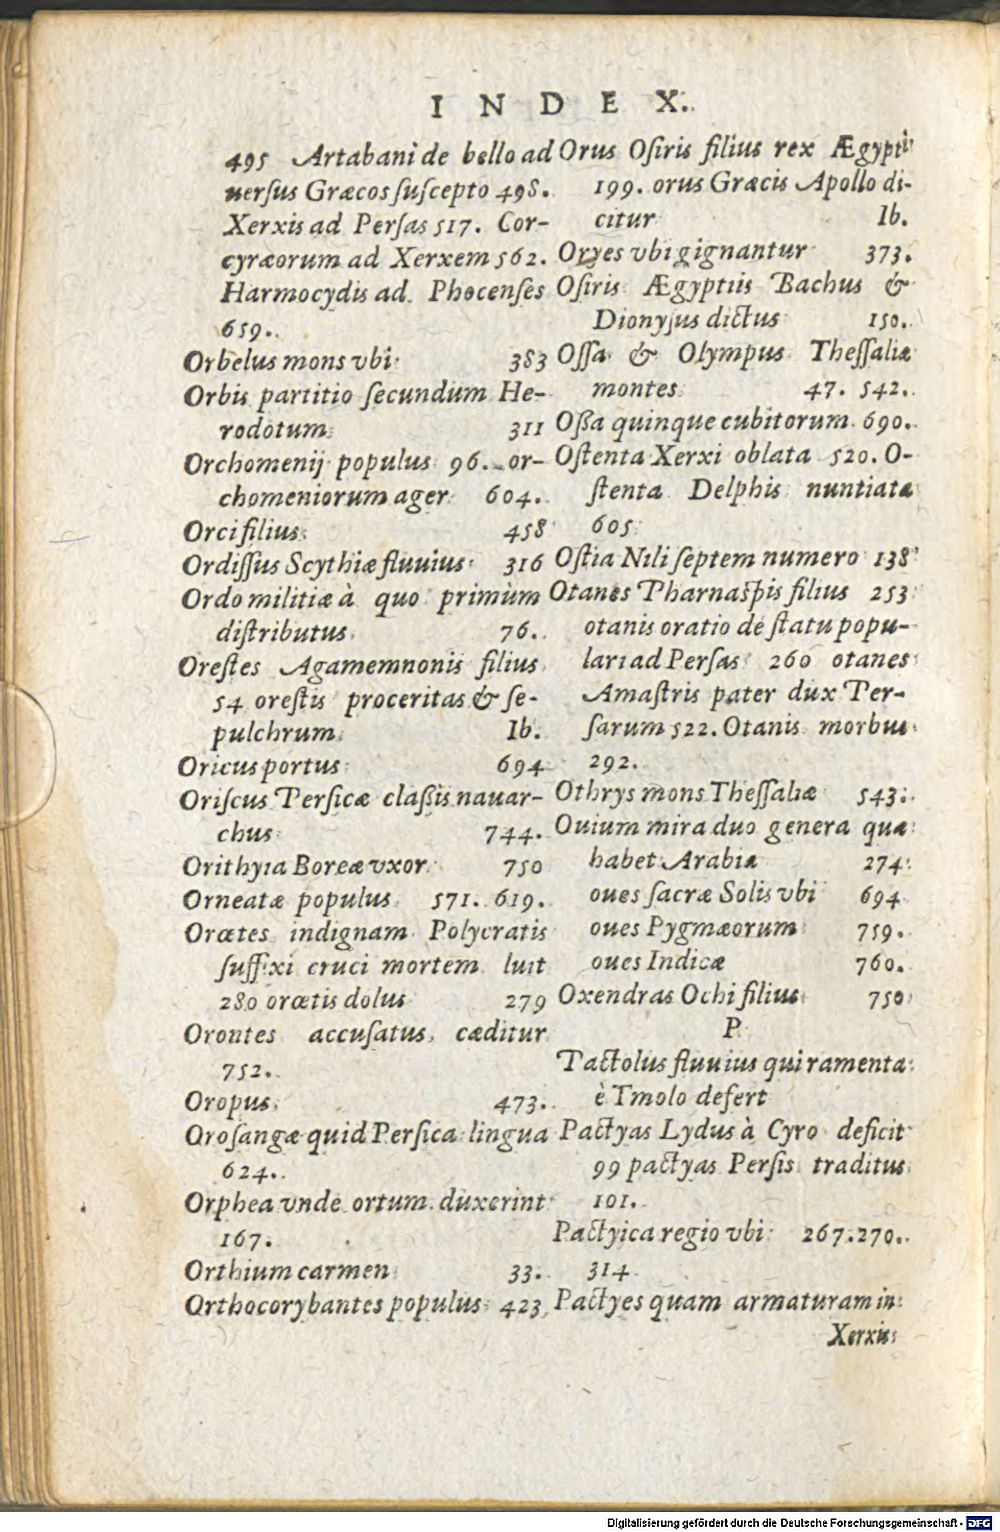 INDEX.
495 Artabani de bello ad
uerſus Græcos ſuſcepto 498.
Xerxis ad Perſas 517. Cor-
cyræorum ad Xerxem 562.
Harmocydis ad Phocenſes
659.
Orbelus mons vbi 383
Orbis partitio ſecundum He-
rodotum 311
Orchomenij populus 96. or-
chomeniorum ager 604.
Orci filius 458
Ordiſſus Scythiæ fluuius 316
Ordo militiæ à quo primùm
diſtributus 76.
Oreſtes Agamemnonis filius
54 oreſtis proceritas & ſe-
pulchrum Ib.
Oricus portus 694
Oriſcus Perſicæ claſsis nauar-
chus 744.
Orithyia Boreæ vxor 750
Orneatæ populus 571. 619.
Orœtes indignam Polycratis
ſuffixi cruci mortem luit
280 orœtis dolus 279
Orontes accuſatus, cæditur
752.
Oropus 473.
Oroſangæ quid Perſica lingua
624.
Orphea vnde ortum duxerint
167.
Orthium carmen 33.
Orthocorybantes populus 423
Orus Oſiris filius rex Ægypti
199. orus Græcis Apollo di-
citur Ib.
Oryes vbi gignantur 373.
Oſiris Ægyptiis Bachus &
Dionyſus dictus 150.
Oſſa & Olympus Theſſaliæ
montes 47. 542.
Oſſa quinque cubitorum 690.
Oſtenta Xerxi oblata 520. O-
ſtenta Delphis nuntiata
605
Oſtia Nili ſeptem numero 138
Otanes Pharnaſpis filius 253
otanis oratio de ſtatu popu-
lari ad Perſas 260 otanes
Amaſtris pater dux Per-
ſarum 522. Otanis morbus
292.
Othrys mons Theſſaliæ 543.
Ouium mira duo genera quæ
habet Arabia 274
oues ſacræ Solis vbi 694
oues Pygmæorum 759.
oues Indicæ 760.
Oxendras Ochi filius 750
P.
Pactolus fluuius qui ramenta
è Tmolo defert
Pactyas Lydus à Cyro deficit
99 pactyas Perſis traditus
101.
Pactyica regio vbi 267. 270.
314
Pactyes quam armaturam in
Xerxis
Digitalisierung gefördert durch die Deutsche Forschungsgemeinschaft - DFG